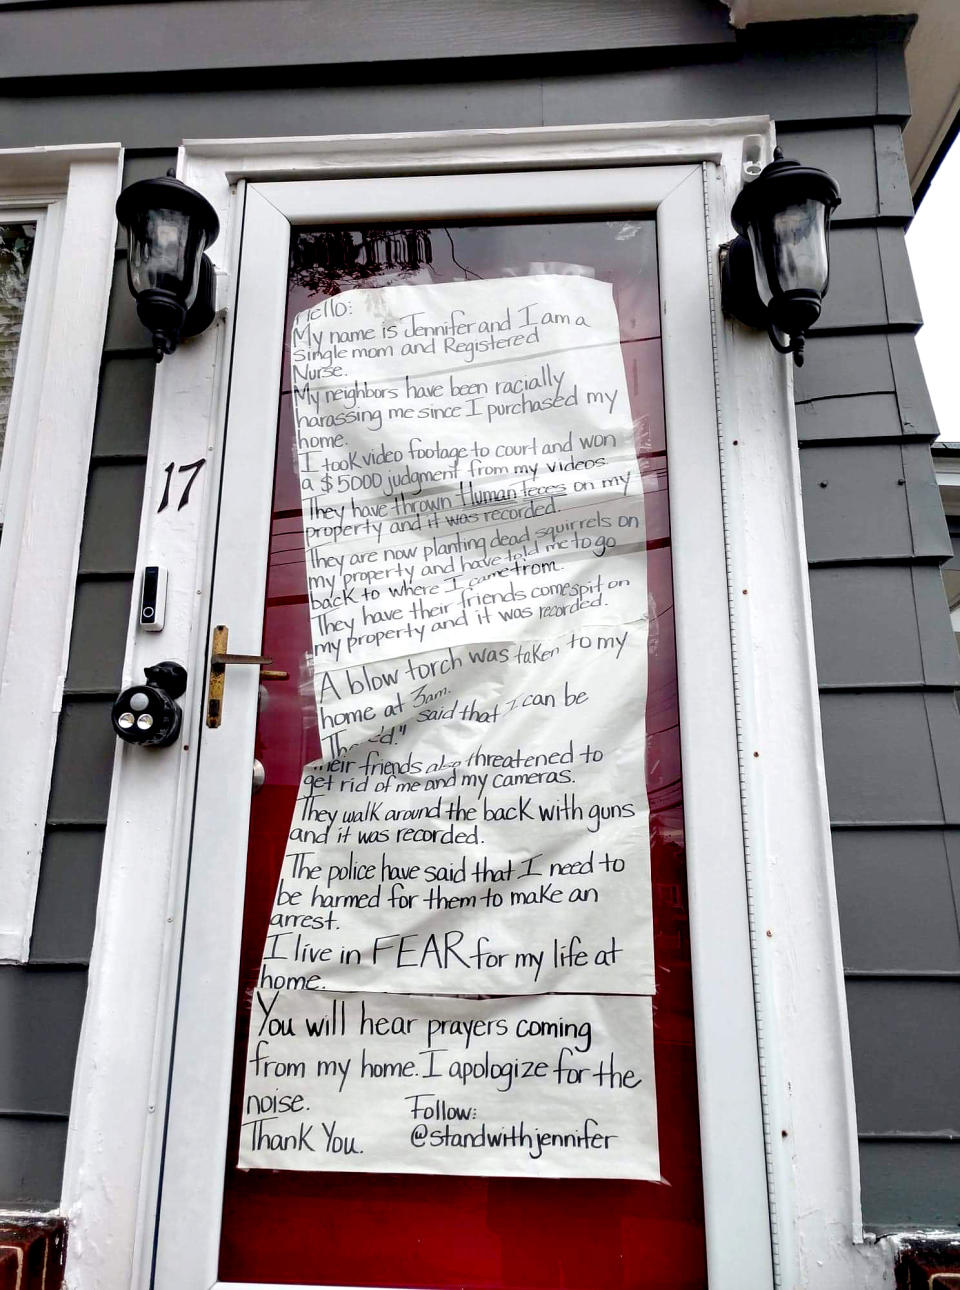 Hello:
My name is Jennifer and I am a
single mom and Registered
Nurse.
My neighbors have been racially
harassing me since I purchased my
home.
I took video footage to court and won
a $5000 judgment from my videos.
They have thrown Human Feces on my
property and it was recorded.
They are now planting dead squirrels on
my property and have told me to go
back to where I came from.
They have their friends come spit on
my property and it was recorded.
A blow torch was taken to my
home at 3am.
said that I can be
Their friends also threatened to
get rid of me and my cameras.
They walk around the back with guns
and it was recorded.
The police have said that I need to
be harmed for them to make an
arrest.
I live in FEAR for my life at
home.
You will hear prayers coming
from my home. I apologize for the
noise.
Thank You.
Follow:
@standwithjennifer
17